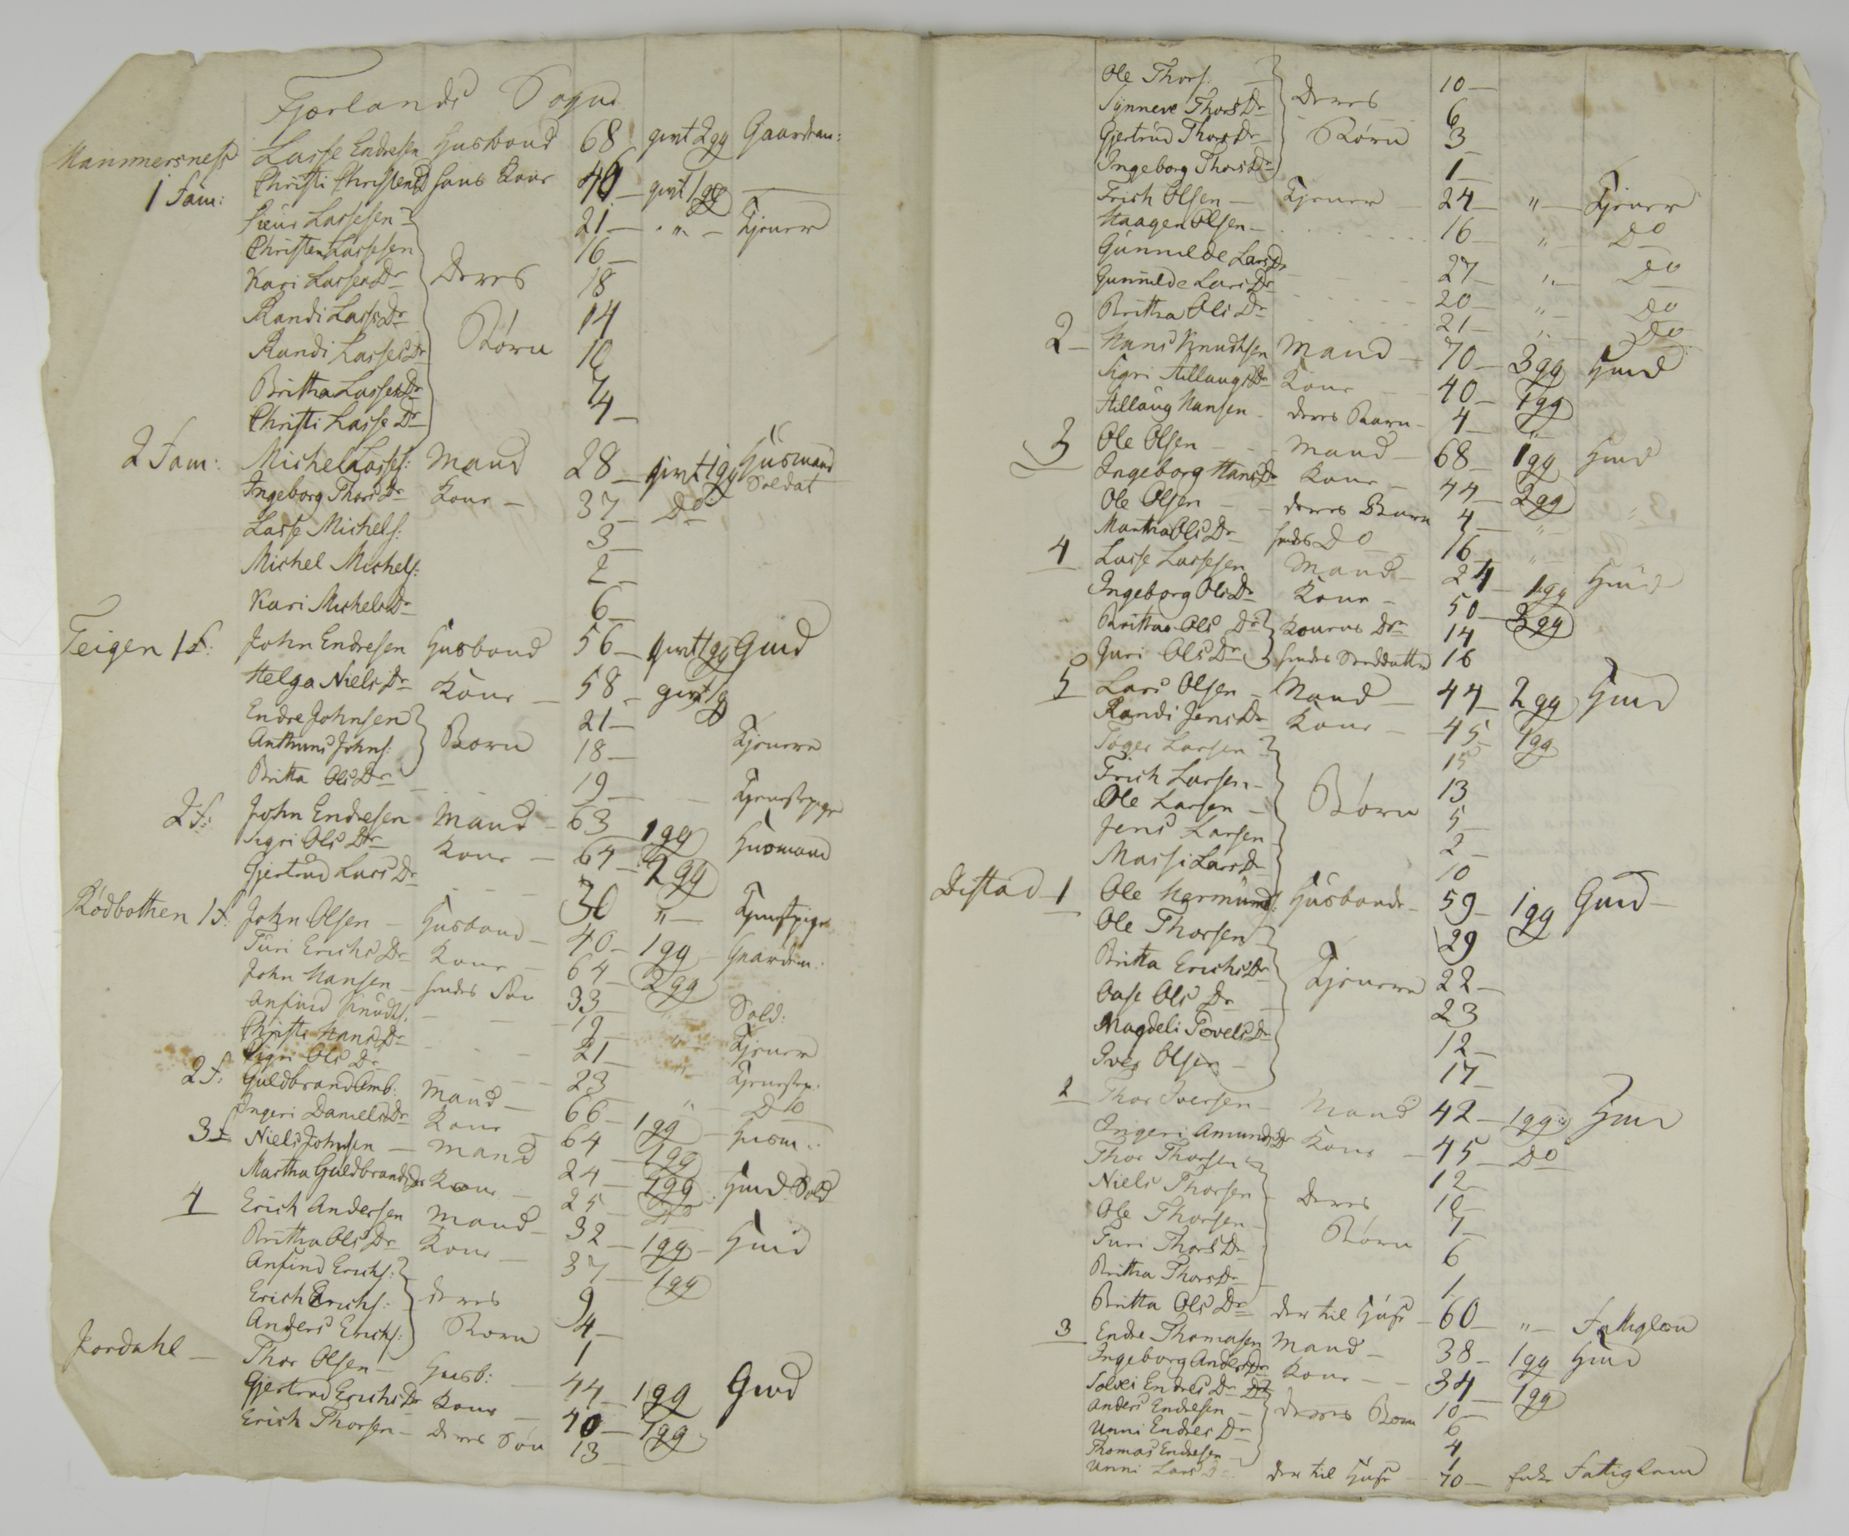 Fjærlands Sogn
Mammersness Lasse Endresen Husbond 68 givt 2gg Gaardm:
1 Fam: Christi Christend hans Kone 46 givt 1gg
Lassesen 21 " Tjener
Christen Lassesen 16
Kari LassesDr Deres 18
Randi LassDr Børn 14
Randi LassesDr 10
Britha LassesDr 7
Christi LasseDr 4
2 Fam: Michel Lasses: Mand 28 givt 1gg Husmand Soldat
Ingeborg ThorsDr Kone 37 Do
Lasse Michels: 3
Michel Michels: 2
Kari MichelsDr 6
Teigen 1 f: John Endresen Husbond 56 givt 1gg Gmd
Helga NielsDr Kone 58 givt 1g
Endre Johnsen Børn 21
Anthuns Johns: 18 Tjenere
Britta OlsDr 19 Tjenestepige
2 f: John Endresen Mand 63 1gg Husmand
Sigri OlsDr Kone 64 2gg
Gjertrud LarsDr 30 " Tjenstpige
Rødbothen 1 f. John Olsen Husbond 40 1gg Gaardm:
Turi ErichsDr Kone 64 2gg
John Hansen hendes Søn 33 Sold:
Anfind Knuds: 19 Tjener
Christi HansDr 21 Tjenestep:
Sigri OlsDr 23 " Do
2 f: Guldbrand Amb: Mand 66 1gg Husm:
Ingeri DanielsDr Kone 64 1gg
3 f Niels Johnsen Mand 24 1gg Hmd Sold
Martha GuldbrandsDr Kone 25
4 Erich Andersen Mand 32 1gg Hmd
Britha OlsDr Kone 37 1gg
Anfind Erichs: deres 9
Erich Erichs: Børn 4
Anders Erichs: 1
Jordahl Thor Olsen Husb: 44 1gg Gmd
Gjertrud ErichsDr Kone 40 1gg
Erich Thorsen Deres Søn 13
Ole Thors: Deres 10
Synneve ThorsDr Børn 6
Gjertrud ThorsDr 3
Ingeborg ThorsDr 1
Erich Olsen Tjener 24 " Tjener
Haagen Olsen 16 " Do
Gunnilde LarsDr 27 " Do
Gunnilde LarsDr 20 " Do
Britha OlsDr 21 " Do
2 Hans Knudsen Mand 70 3gg Hmd
Sigri AillaugsDr Kone 40 1gg
Aillaug Hansen deres Barn 4 "
3 Ole Olsen Mand 68 1gg Hmd
Ingeborg HansDr Kone 44 2gg
Ole Olsen deres Barn 4 "
Martha OlsDr hendes Do 16 "
4 Lasse Lassesen Mand 24 1gg Hmd
Ingeborg OlsDr Kone 50 3gg
Britha OlsDr Konens Dr 14
Guri OlsDr hendes 16
5 Lars Olsen Mand 44 2gg Hmd
Randi JensDr Kone 45 1gg
Tøger Larsen 15
Erich Larsen Børn 13
Ole Larsen 5
Jens Larsen 2
Massi LarsDr 10
Distad 1 Ole Hermunds: Husbonde 59 1gg Gmd
Ole Thorsen 29
Britta ErichsDr Tjenere 22
Aase OlsDr 23
Magdeli PovelsDr 12
Iver Olsen 17
2 Thor Iversen Mand 42 1gg Hmd
Ingeri AmundsDr Kone 45 Do
Thor Thorsen 12
Niels Thorsen Deres 10
Ole Thorsen Børn 7
Turi ThorsDr 6
Britha ThorsDr 1
Britta OlsDr der til Huse 60 " Fattiglem
3 Endre Thomasen Mand 38 1gg Hmd
Ingeborg AndersDr Kone 34 1gg
Solvei EndresDr 10
Anders Endresen deres Børn 6
Unni EndresDr 4
Thomas Endresen 1
Unni LarsDr der til Huse 70 Enke Fattiglem